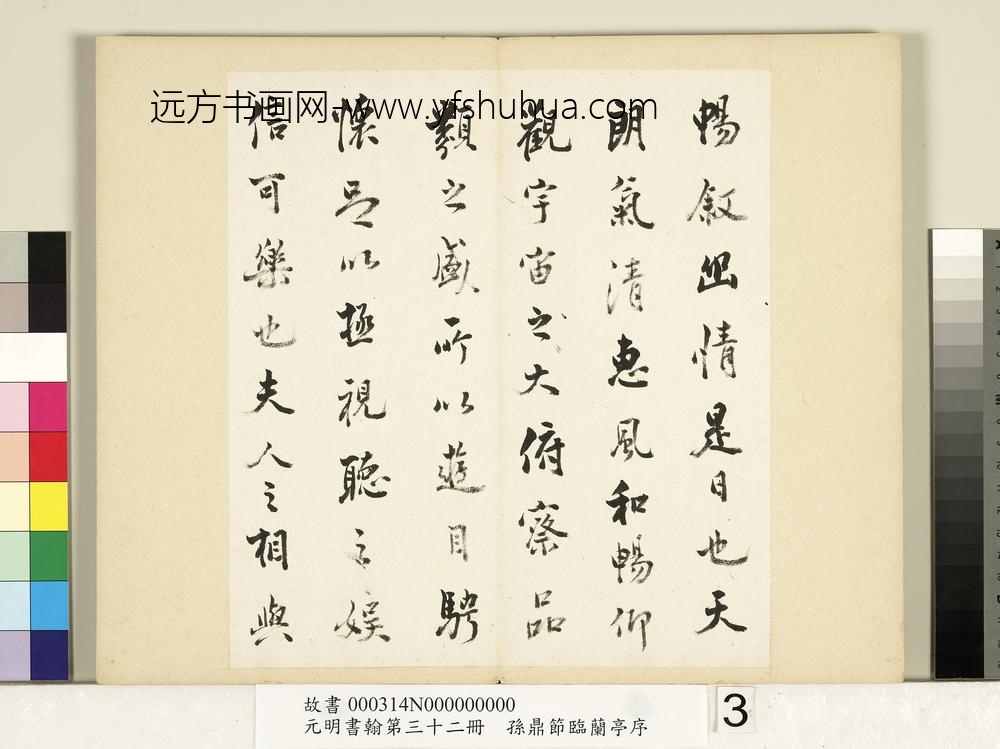 远方书画网-www.yfshuhua.com
暢敘幽情是日也天
朗氣清惠風和暢仰
觀宇宙之大俯察品
類之盛所以遊目騁
懷足以極視聽之娛
信可樂也夫人之相與
故書 000314N000000000
元明書翰第三十二冊 孫鼎節臨蘭亭序
3